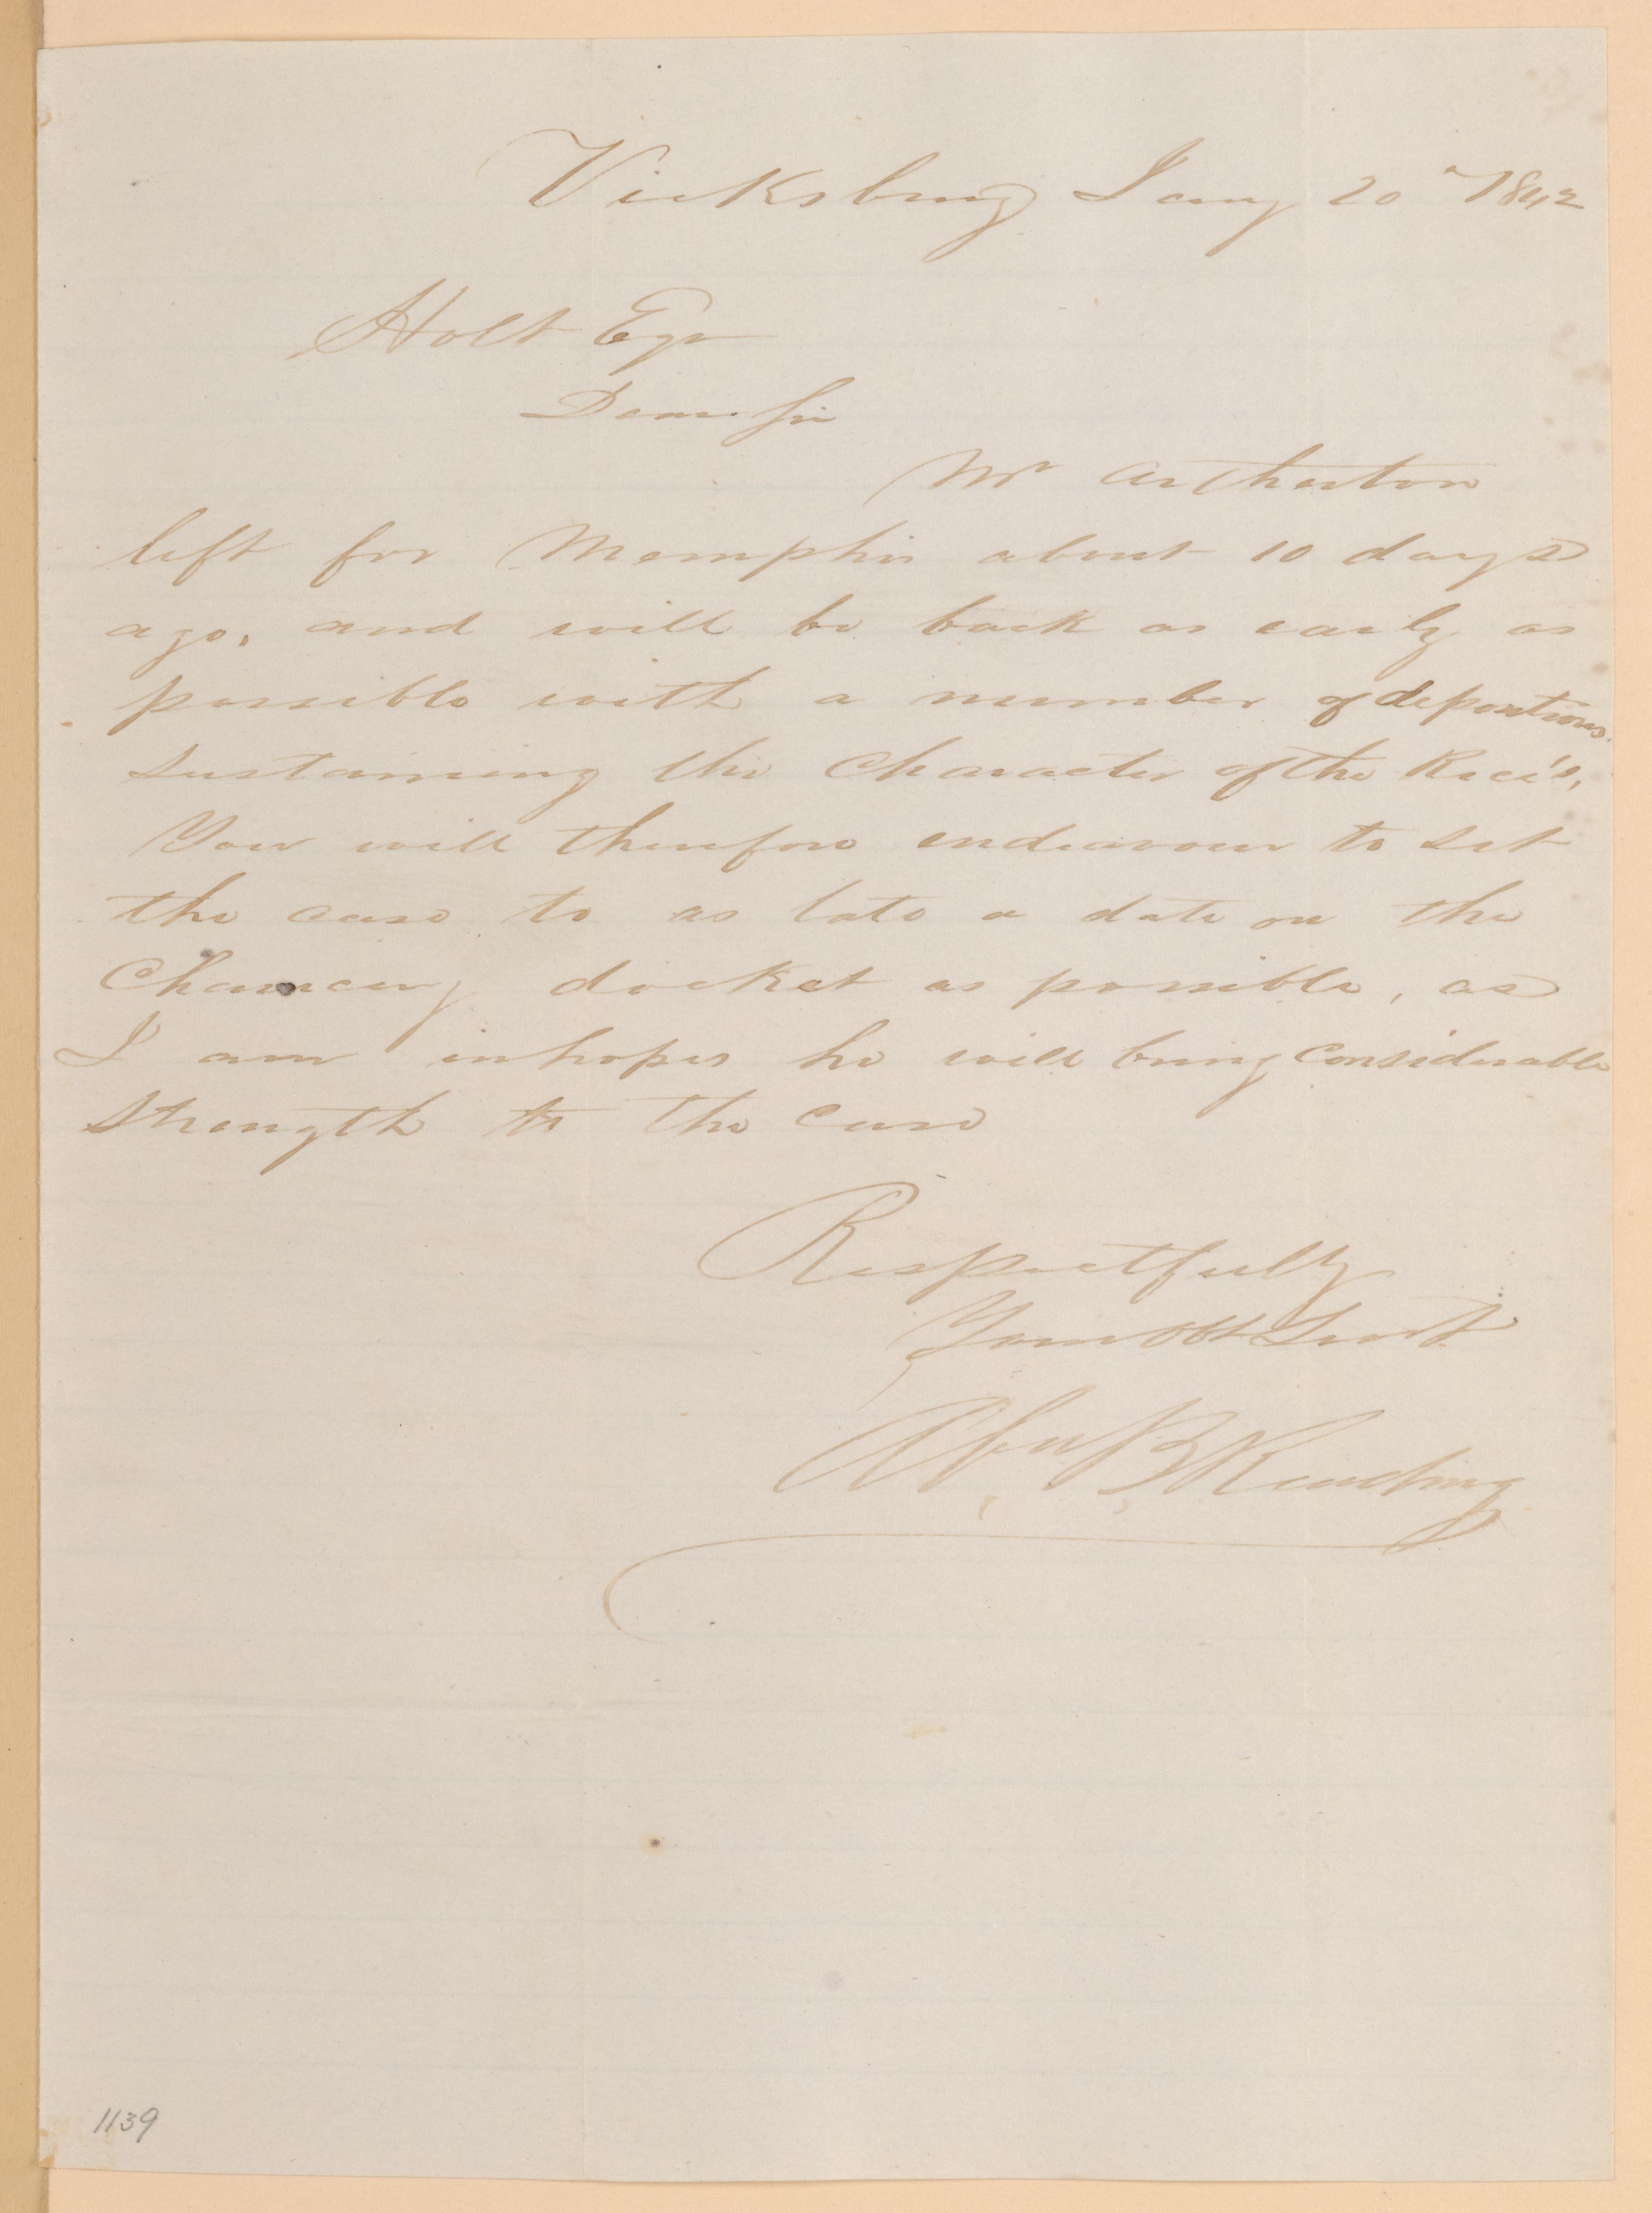 Vicksburg Jany 20th 1842
Holt Esqr
Dear Sir
Mr Artherton
left for Memphis about 10 days
ago, and will be back as early as
possible with a number of depositions
sustaining the Character of the Rice's,
You will therefore endeavour to set
the case to as late a date on the
Chancery docket as possible, as
I am in hopes he will bring Considerable
strength to the Case
Respectfully
Your Obt Servt
B Reading
1139